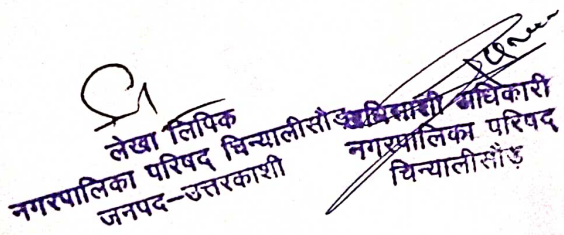 लेखा लिपिक
नगरपालिका परिषद् चिन्यालीसौड़
जनपद-उत्तरकाशी
अधिशासी अधिकारी
नगरपालिका परिषद्
चिन्यालीसौड़